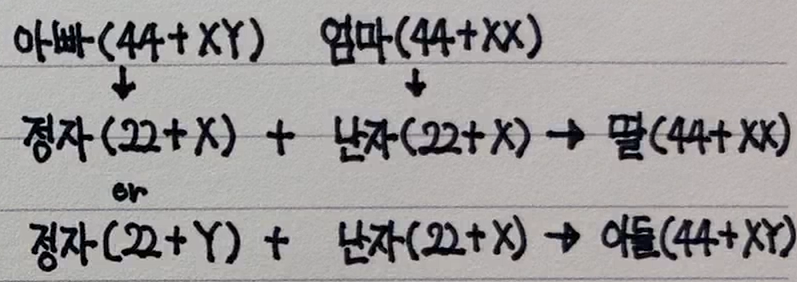 아빠(44+XY) 엄마(44+XX)
↓ ↓
정자(22+X) + 난자(22+X) → 딸(44+XX)
or
정자(22+Y) + 난자(22+X) → 아들(44+XY)